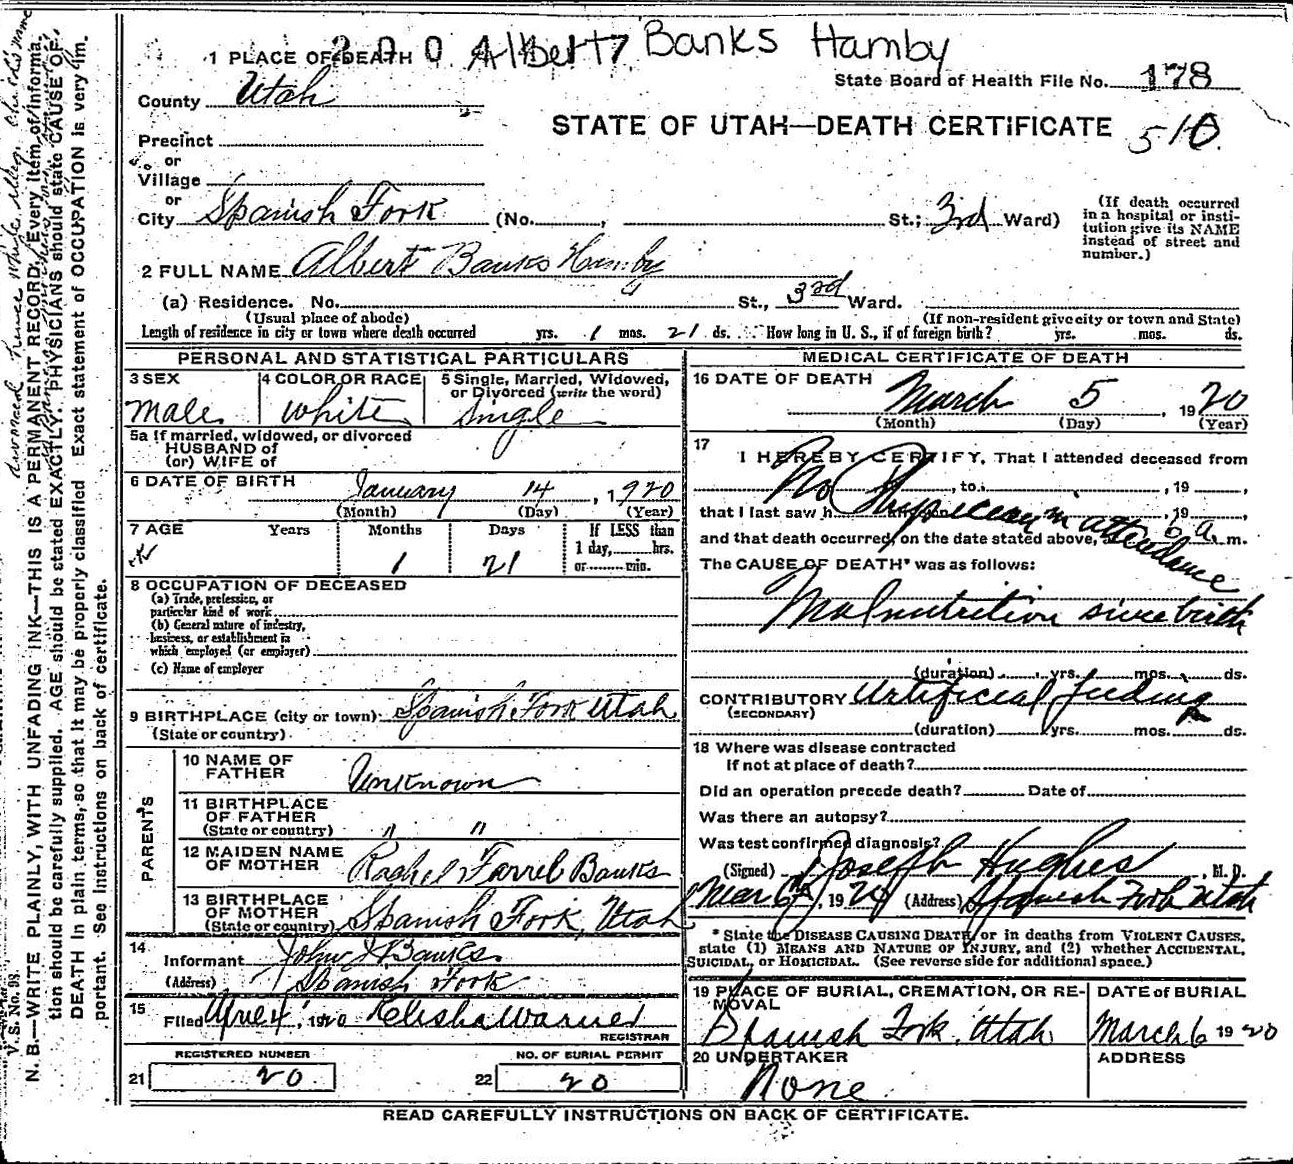 200 Albert Banks Hamby
1 PLACE OF DEATH
State Board of Health File No. 178
County Utah
STATE OF UTAH—DEATH CERTIFICATE 510
Precinct
or
Village
or
City Spanish Fork (No. , St.; 3rd Ward)
(If death occurred in a hospital or insti-
tution give its NAME
instead of street and
number.)
2 FULL NAME Albert Banks Hamby
(a) Residence. No. St., 3rd Ward.
(Usual place of abode) (If non-resident give city or town and State)
Length of residence in city or town where death occurred yrs. 1 mos. 21 ds. How long in U. S., if of foreign birth? yrs. mos. ds.
PERSONAL AND STATISTICAL PARTICULARS
3 SEX 4 COLOR OR RACE 5 Single, Married, Widowed,
or Divorced (write the word)
male white Single
5a If married, widowed, or divorced
HUSBAND of
(or) WIFE of
6 DATE OF BIRTH
January 14, 1920
(Month) (Day) (Year)
7 AGE Years Months Days If LESS than
1 day, hrs.
or min.
1 21
8 OCCUPATION OF DECEASED
(a) Trade, profession, or
particular kind of work
(b) General nature of industry,
business, or establishment in
which employed (or employer)
(c) Name of employer
9 BIRTHPLACE (city or town) Spanish Fork Utah
(State or country)
PARENTS
10 NAME OF
FATHER Unknown
11 BIRTHPLACE
OF FATHER
(State or country) " "
12 MAIDEN NAME
OF MOTHER Rachel Farrel Banks
13 BIRTHPLACE
OF MOTHER
(State or country) Spanish Fork, Utah
14
Informant John J Banks
(Address) Spanish Fork
15
Filed 4, 1920 Elisha Warner
REGISTRAR
REGISTERED NUMBER NO. OF BURIAL PERMIT
21 20 22 20
MEDICAL CERTIFICATE OF DEATH
16 DATE OF DEATH
March 5, 1920
(Month) (Day) (Year)
17
I HEREBY CERTIFY, That I attended deceased from
, to , 19 ,
No Physician in attendance
that I last saw h , 19 ,
and that death occurred, on the date stated above, 6 a. m.
The CAUSE OF DEATH* was as follows:
Malnutrition since birth
(duration) yrs. mos. ds.
CONTRIBUTORY Artificial feeding
(SECONDARY)
(duration) yrs. mos. ds.
18 Where was disease contracted
If not at place of death?
Did an operation precede death? Date of
Was there an autopsy?
Was test confirmed diagnosis?
(Signed) Joseph Hughes, M. D.
Mar 6th, 1920 (Address) Spanish Fork Utah
* State the DISEASE CAUSING DEATH, or in deaths from VIOLENT CAUSES,
state (1) MEANS AND NATURE OF INJURY, and (2) whether ACCIDENTAL,
SUICIDAL, or HOMICIDAL. (See reverse side for additional space.)
19 PLACE OF BURIAL, CREMATION, OR RE-
MOVAL
Spanish Fork, Utah
DATE of BURIAL
March 6 1920
20 UNDERTAKER
None
ADDRESS
READ CAREFULLY INSTRUCTIONS ON BACK OF CERTIFICATE.
V. S. No. 98.
N. B.—WRITE PLAINLY, WITH UNFADING INK—THIS IS A PERMANENT RECORD. Every item of informa-
tion should be carefully supplied. AGE should be stated EXACTLY. PHYSICIANS should state CAUSE OF
DEATH in plain terms, so that it may be properly classified. Exact statement of OCCUPATION is very im-
portant. See instructions on back of certificate.